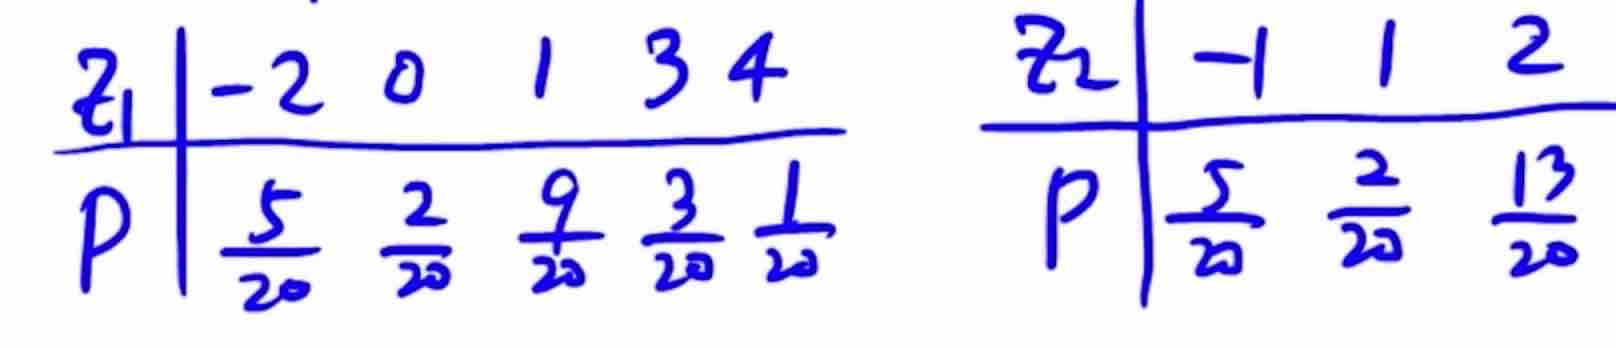 Z₁ | -2 0 1 3 4
P | 5/20 2/20 9/20 3/20 1/20
Z₂ | -1 1 2
P | 5/20 2/20 13/20